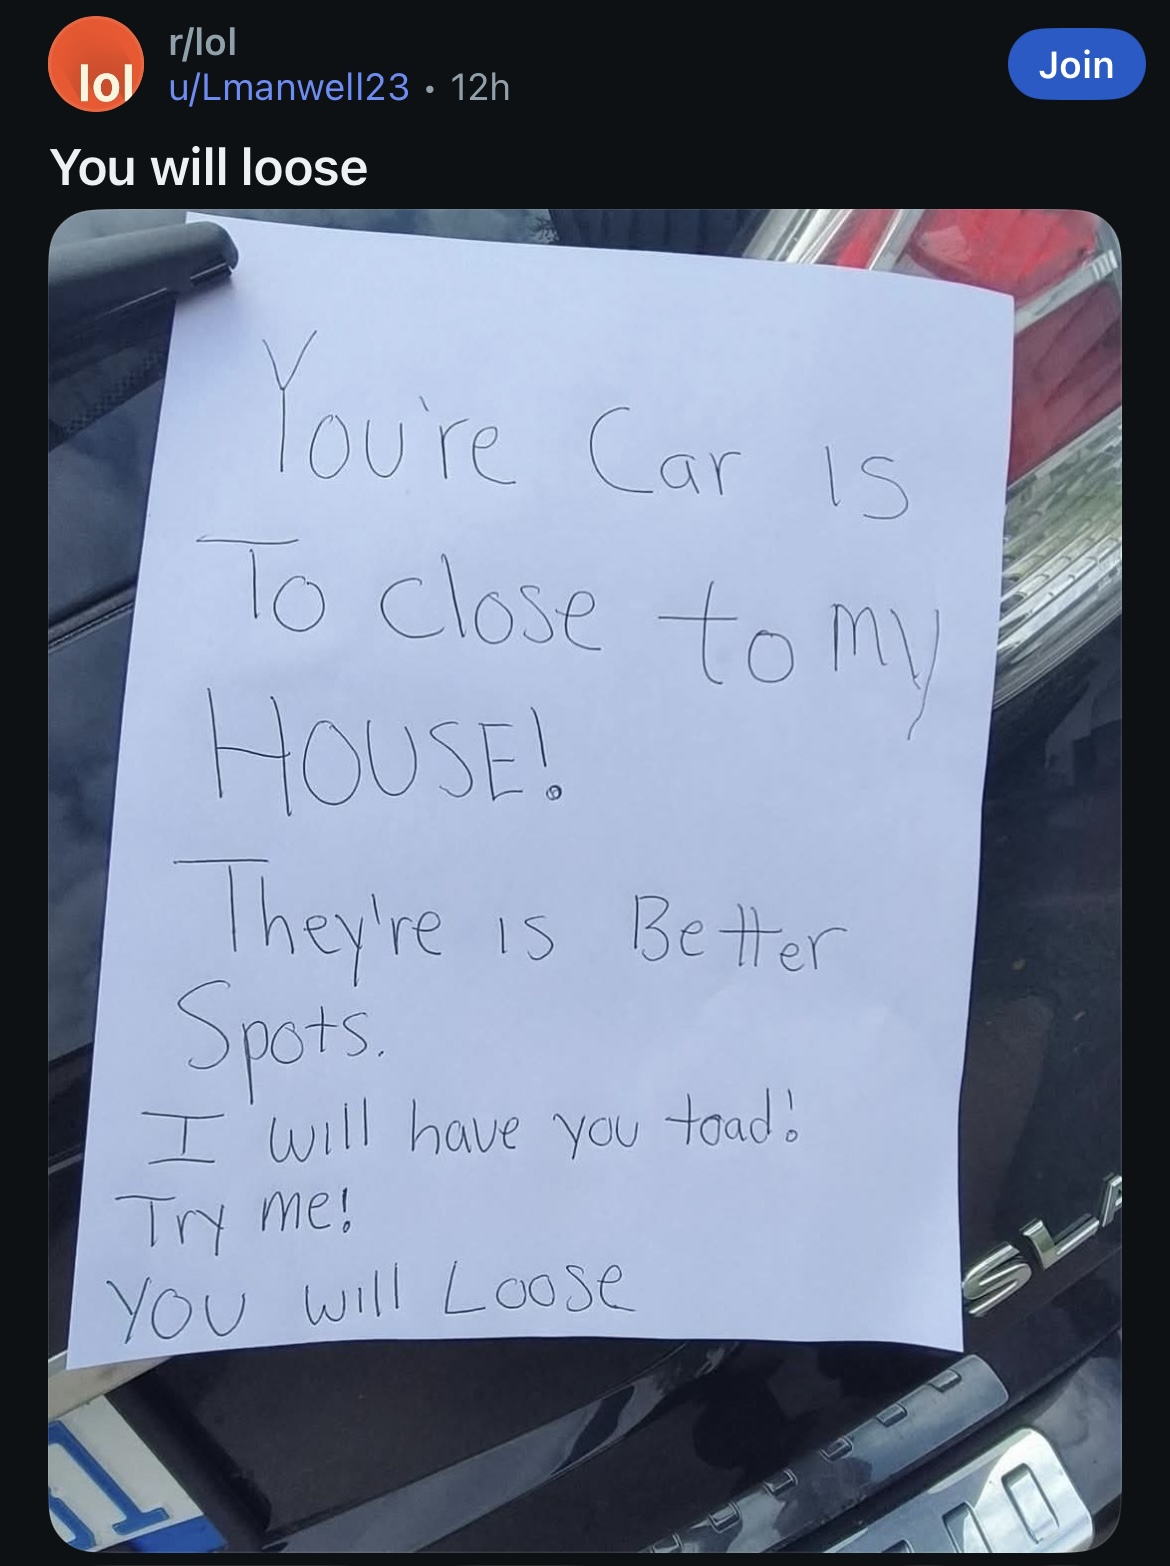 lol
r/lol
u/Lmanwell23 • 12h
Join
You will loose
You're Car is
To close to my
HOUSE!
They're is Better
Spots.
I will have you toad!
Try me!
You will Loose
SLA